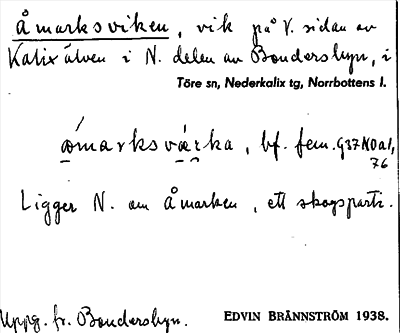 Åmarksviken, vik på V. sidan av
Kalix älven i N. delen av Bondersbyn, i
Töre sn, Nederkalix tg, Norrbottens l.
åmarksvärka, bf. fem. G37K0a1,
76
Ligger N. om Åmarken, ett skogsparti.
Uppg. fr. Bondersbyn.
EDVIN BRÄNNSTRÖM 1938.